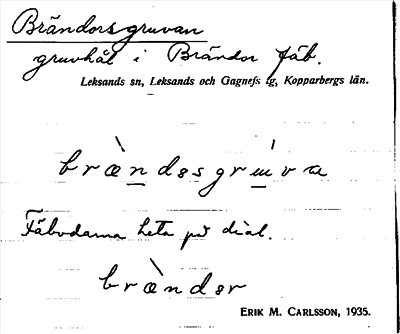 Brändorsgruvan
gruvhål i Brändor fäb.
Leksands sn, Leksands och Gagnefs tg, Kopparbergs län.
brændəsgruva
Fäbodarna heta på dial.
brændər
ERIK M. CARLSSON, 1935.